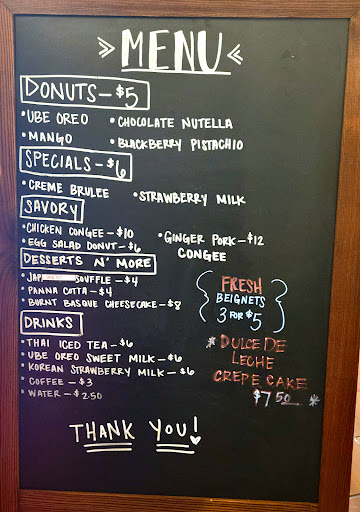 MENU
DONUTS - $5
• UBE OREO • CHOCOLATE NUTELLA
• MANGO • BLACKBERRY PISTACHIO
SPECIALS - $6
• CREME BRULEE • STRAWBERRY MILK
SAVORY
• CHICKEN CONGEE - $10
• EGG SALAD DONUT - $6
• GINGER PORK - $12
CONGEE
DESSERTS N' MORE
• SOUFFLE - $4
• PANNA COTTA - $4
• BURNT BASQUE CHEESECAKE - $8
FRESH
BEIGNETS
3 FOR $5
DRINKS
• THAI ICED TEA - $6
• UBE OREO SWEET MILK - $6
• KOREAN STRAWBERRY MILK - $6
• COFFEE - $3
• WATER - $2.50
* DULCE DE
LECHE
CREPE CAKE
$7.50 *
THANK YOU!